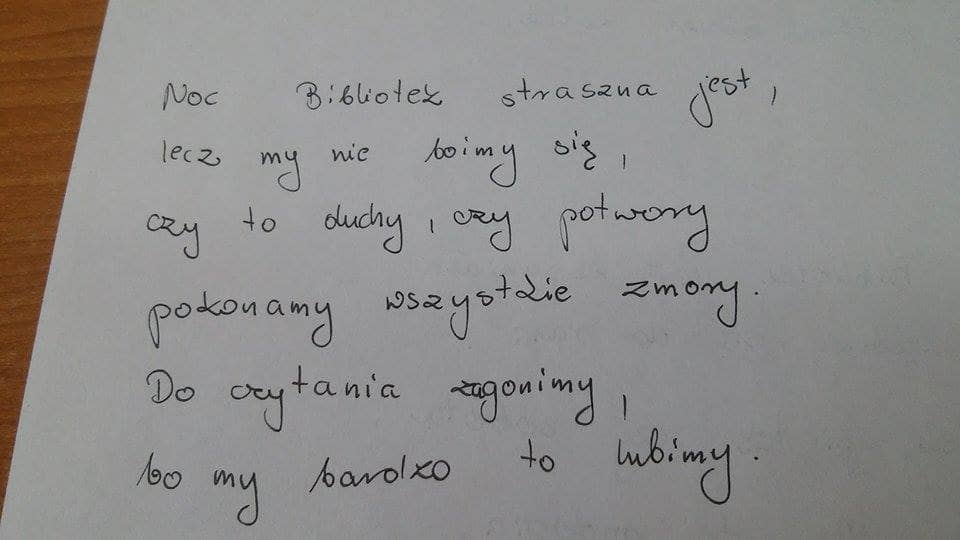 Noc Bibliotek straszna jest,
lecz my nie boimy się,
czy to duchy, czy potwory
pokonamy wszystkie zmory.
Do czytania zagonimy,
bo my bardzo to lubimy.